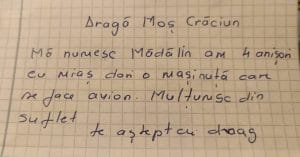 Dragă Moș Crăciun
Mă numesc Mădălin am 4 anișori
eu miaș dori o mașinuță care
se face avion. Mulțumesc din
suflet
te aștept cu drag